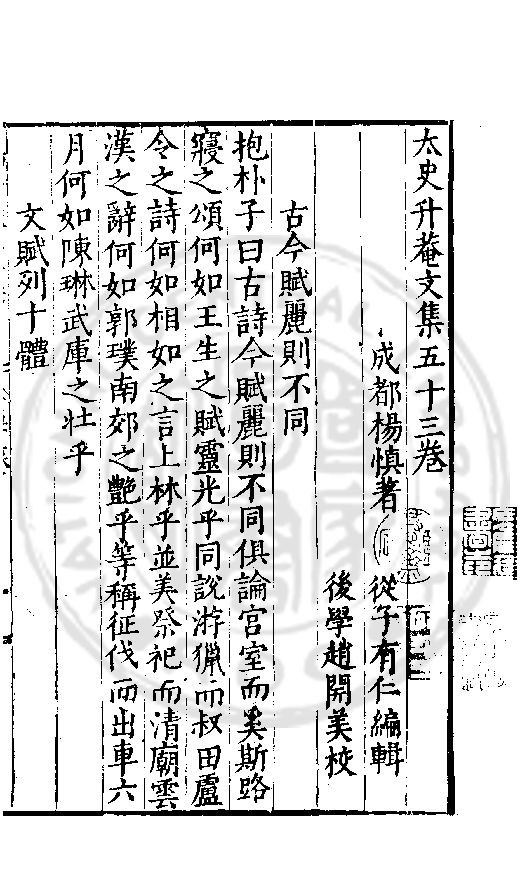 太史升菴文集五十三卷
成都楊慎著 從子有仁編輯
後學趙開美校
古今賦麗則不同
抱朴子曰古詩今賦麗則不同俱論宮室而奚斯路
寢之頌何如王生之賦靈光乎同說游獵而叔田盧
令之詩何如相如之言上林乎並美祭祀而清廟雲
漢之辭何如郭璞南郊之艷乎等稱征伐而出車六
月何如陳琳武庫之壯乎
文賦列十體